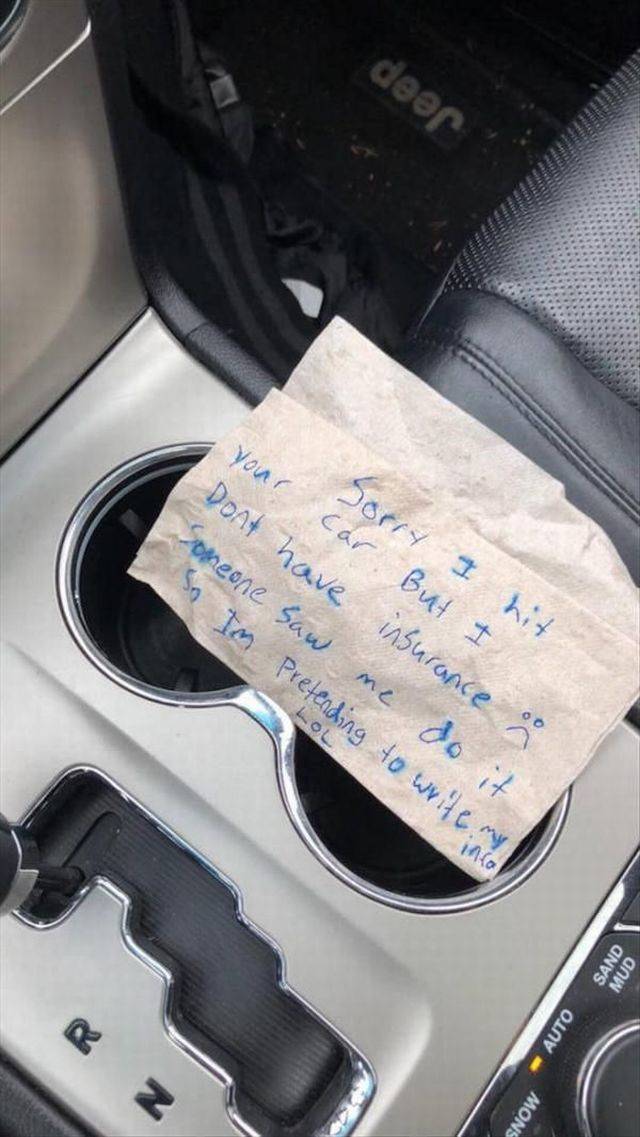 Jeep
Sorry I hit
your car But I
Dont have insurance
Someone saw me do it
So Im Pretending to write my
LOL info
R
N
SAND
MUD
AUTO
SNOW